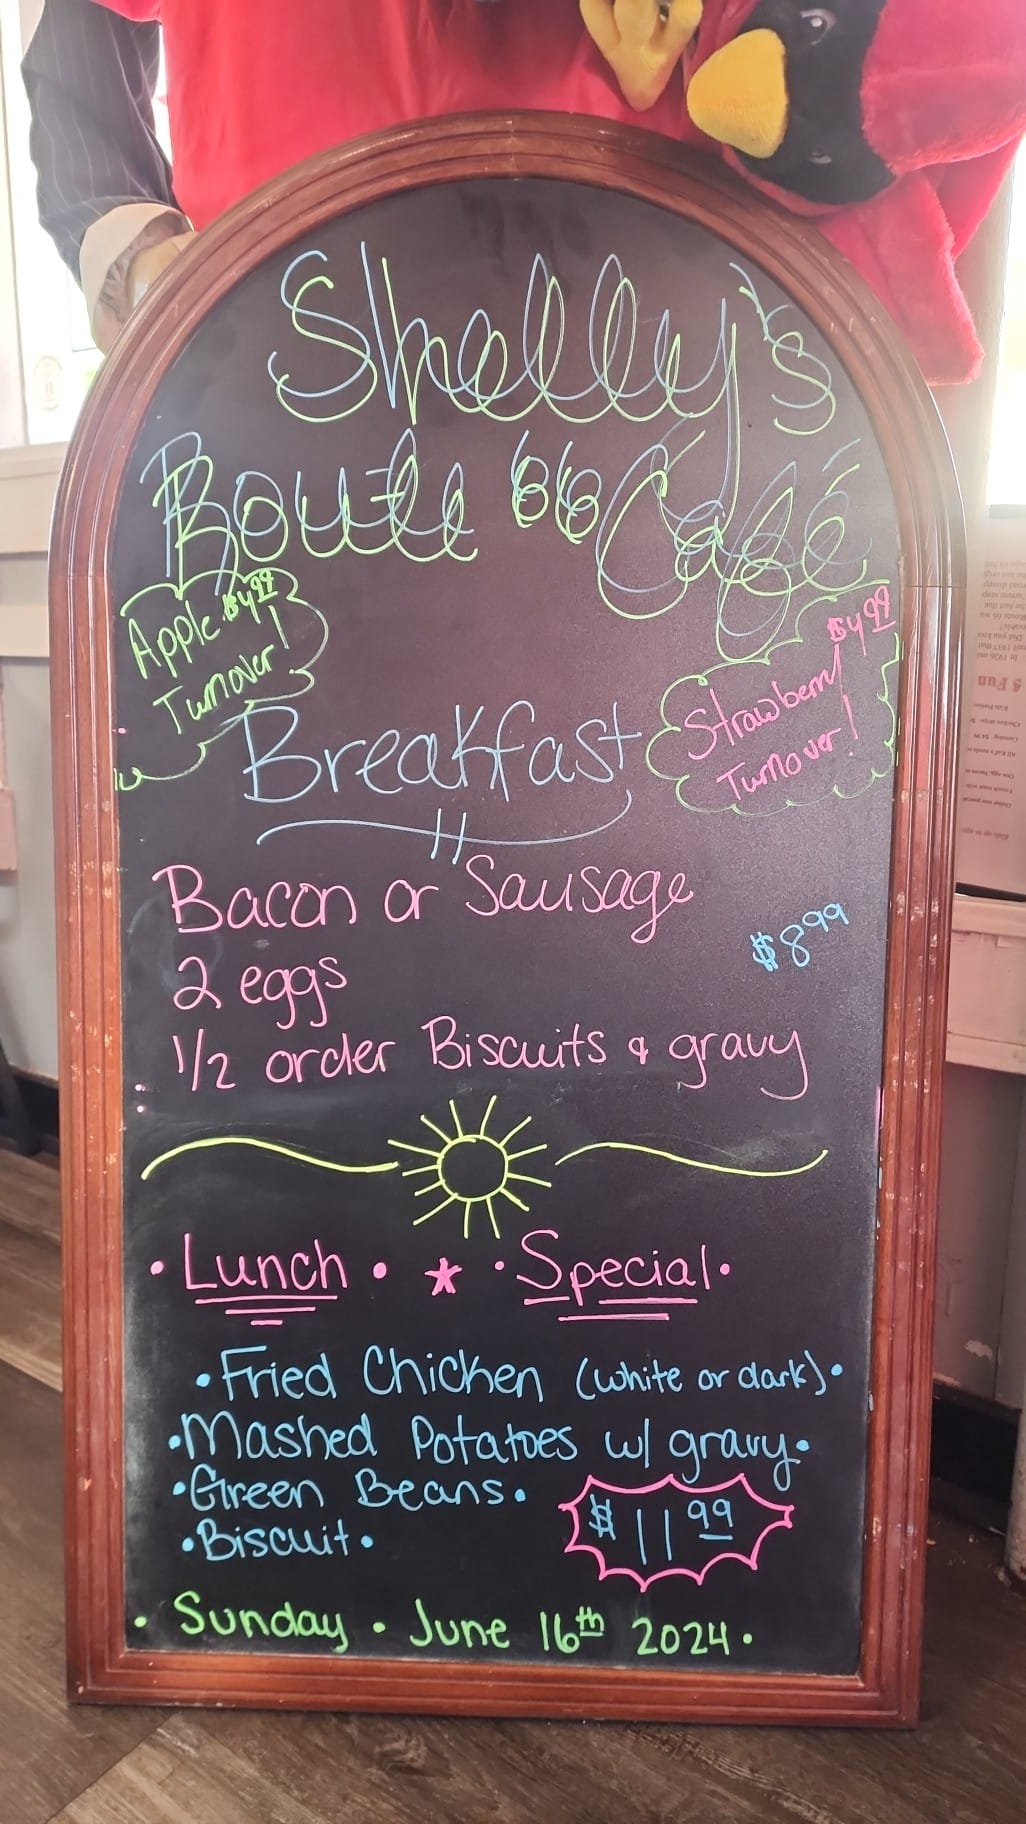 Shelly's
Route 66 Café
Apple $4.99
Turnover!
$4.99
Strawberry
Turnover!
Breakfast
Bacon or Sausage
$8.99
2 eggs
1/2 order Biscuits & gravy
• Lunch • * • Special •
• Fried Chicken (white or dark) •
• Mashed Potatoes w/ gravy •
• Green Beans •
• Biscuit •
$11.99
• Sunday • June 16th 2024 •